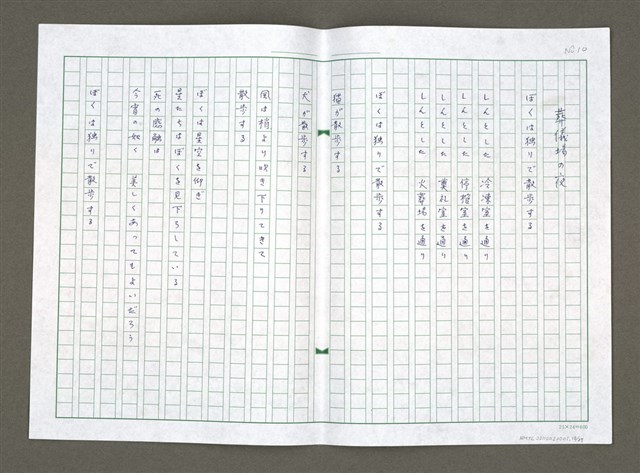 No.10
葬儀場の夜
ぼくは独りで散歩する
しんとした　冷凍室を通り
しんとした　停棺室を通り
しんとした　奠礼室を通り
しんとした　火葬場を通り
ぼくは独りで散歩する
猫が散歩する
犬が散歩する
風は梢より吹き下りてきて
散歩する
ぼくは星空を仰ぎ
星たちはぼくを見下ろしている
死の感触は
今宵の如く　美しくあってもよいだろう
ぼくは独りで散歩する